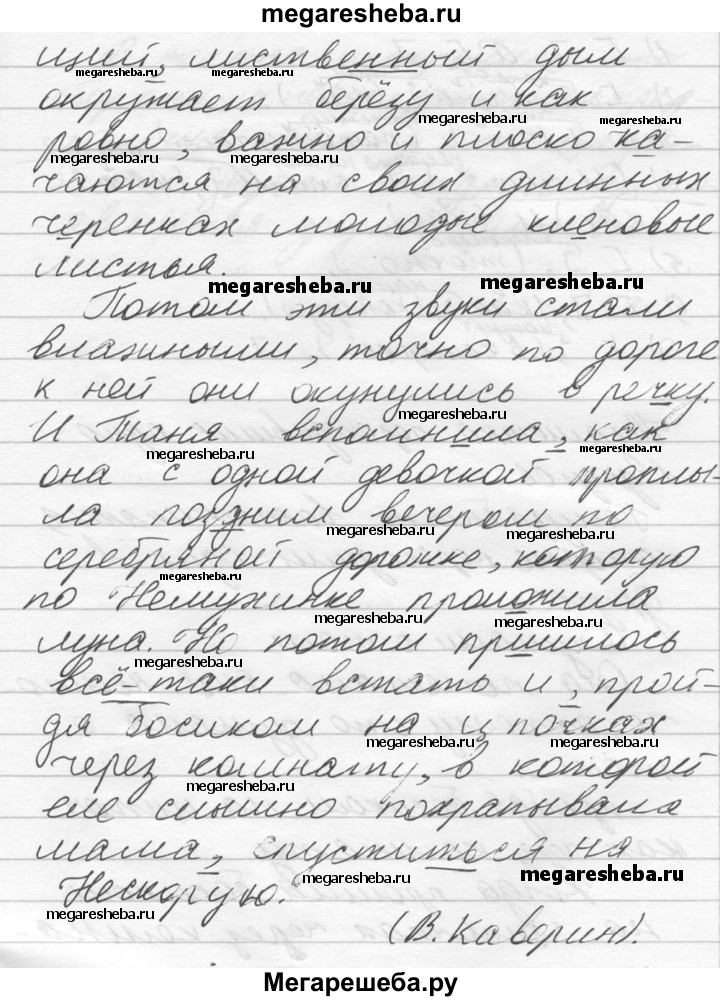 megaresheba.ru
щий, лиственный дым
megaresheba.ru megaresheba.ru
окружает берёзу и как
megaresheba.ru megaresheba.ru
ровно, важно и плоско ка-
megaresheba.ru megaresheba.ru
чаются на своих длинных
черенках молодые кленовые
листья.
megaresheba.ru megaresheba.ru
Потом эти звуки стали
влажными, точно по дороге
к ней они окунулись в речку.
megaresheba.ru
И Таня вспомнила, как
megaresheba.ru
она с одной девочкой проплы-
ла поздним вечером по
megaresheba.ru megaresheba.ru
серебряной дорожке, которую
megaresheba.ru
по Немухинке проложила
megaresheba.ru
луна. Но потом пришлось
megaresheba.ru
всё-таки встать и, прой-
дя босиком на цыпочках
megaresheba.ru megaresheba.ru
через комнату, в которой
еле слышно похрапывала
megaresheba.ru
мама, спуститься на
megaresheba.ru megaresheba.ru
Нескорую.
megaresheba.ru
(В. Каверин).
Мегарешеба.ру